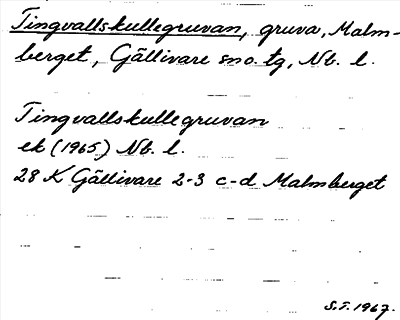 Tingvallskullegruvan, gruva, Malm-
berget, Gällivare sno. tg, Nb. l.
Tingvallskullegruvan
ek (1965) Nb. l.
28 K Gällivare 2-3 c-d Malmberget
S.T. 1967.